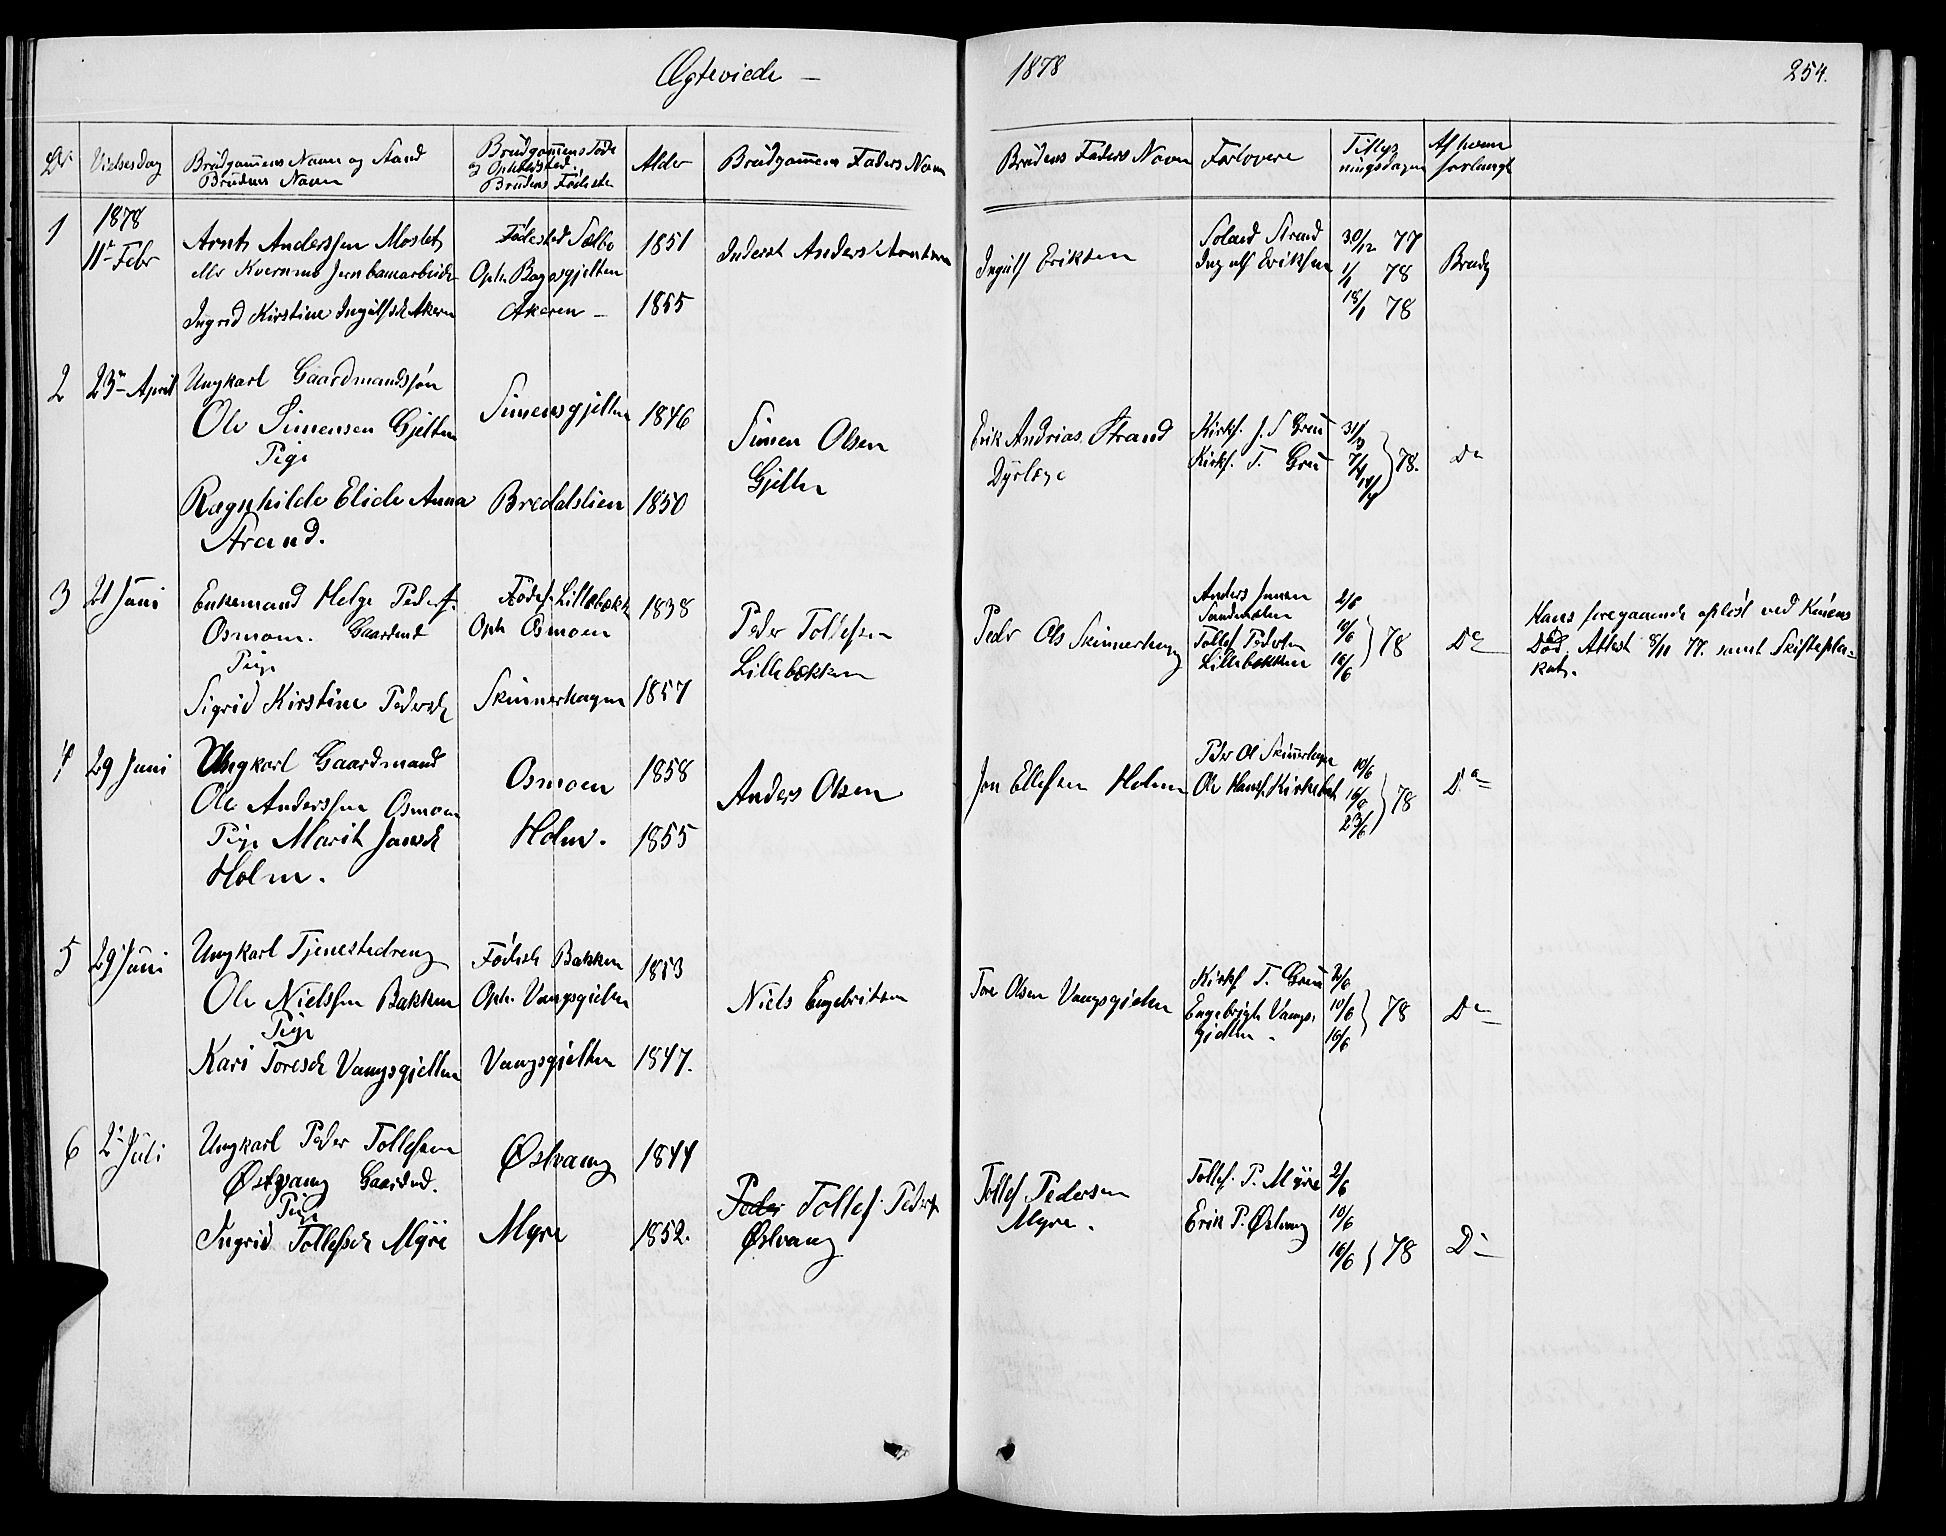 Ægteviede — 1878 254.
No Vielsesdag Brudgommens Navn og Stand Brudens Navn
Brudgommens Føde og Opholdssted Brudens Fødested
Alder Brudgommens Faders Navn Brudens Faders Navn Forlovere Tillysningsdagen Af hvem forlangt
1 1878
11te Febr Arnt Anderssen Moslet 1851 Inderst Anders Arntsen Ingulf Eriksen
eller Kvernmo Jernbanearbeider
Fødested Sælbo
Oph. Bagsgjelten
Ingrid Kirstine Ingulfsdt Akeren Akeren — 1855
Soland Strand
Ingulf Eriksen
30/12 77
1/1 78
18/1 78
Brudg
2 23de April Ungkarl Gaardmandssøn
Ole Simensen Gjelten Simensgjelten 1846 Simen Olsen
Gjelten
Pige
Ragnhilde Elide Anna Bredalslien 1850
Strand.
Erik Andrias Strand
Dyrlæge
Kirks. J. S Gren
Kirks. T. Gren
31/3
7/4
14/4 } 78. Do
3 21 Juni Enkemand Helge Peders. Fødes. Lillebækk 1838
Osmoen. Gaardmd Oph Osmoen
Pige
Sigrid Kirstine Pedersdt Skinnerhagen 1857
Peder Tollefsen
Lillebækken
Peder Ols Skinnerhaug
Anders Jansen
Sandeholm
Tollef Pedersen
Lillebækken
2/6
10/6
16/6 } 78 Do
Hans foregaaende opløst ved Konens
Død. Attest 8/11 77. samt Skiftepla-
kat.
4 29 Juni Ungkarl Gaardmand Osmoen 1858 Anders Olsen
Ole Anderssen Osmoen
Pige Marit Jonsdt Holm. 1855
Holm.
Jon Ellefsen Holm
Peder Ol Skinnerhagen
Ole Hans. Kirkebak
10/6
16/6
23/6 } 78 Do
5 29 Juni Ungkarl Tjenestedreng Fødested Bakken 1853
Ole Nielssen Bakken Oph. Vangsgjelten Niels Engebritsen
Pige
Kari Toresdt Vangsgjelten Vangsgjelten 1847.
Tore Olsen Vangsgjelten
Kirks T. Gren
Engebrigt Vangs-
gjelten.
2/6
10/6
16/6 } 78 Do
6 2 Juli Ungkarl Peder Tollefsen Østvang 1844
Østvang Gaardmd.
Pige
Ingrid Tollefsdt Myre Myre 1852.
Peder Tollef Peders
Østvang
Tollef Pedersen
Myre.
Tollef. P. Myre
Erik P. Østvang
2/6
10/6
16/6 } 78 Do